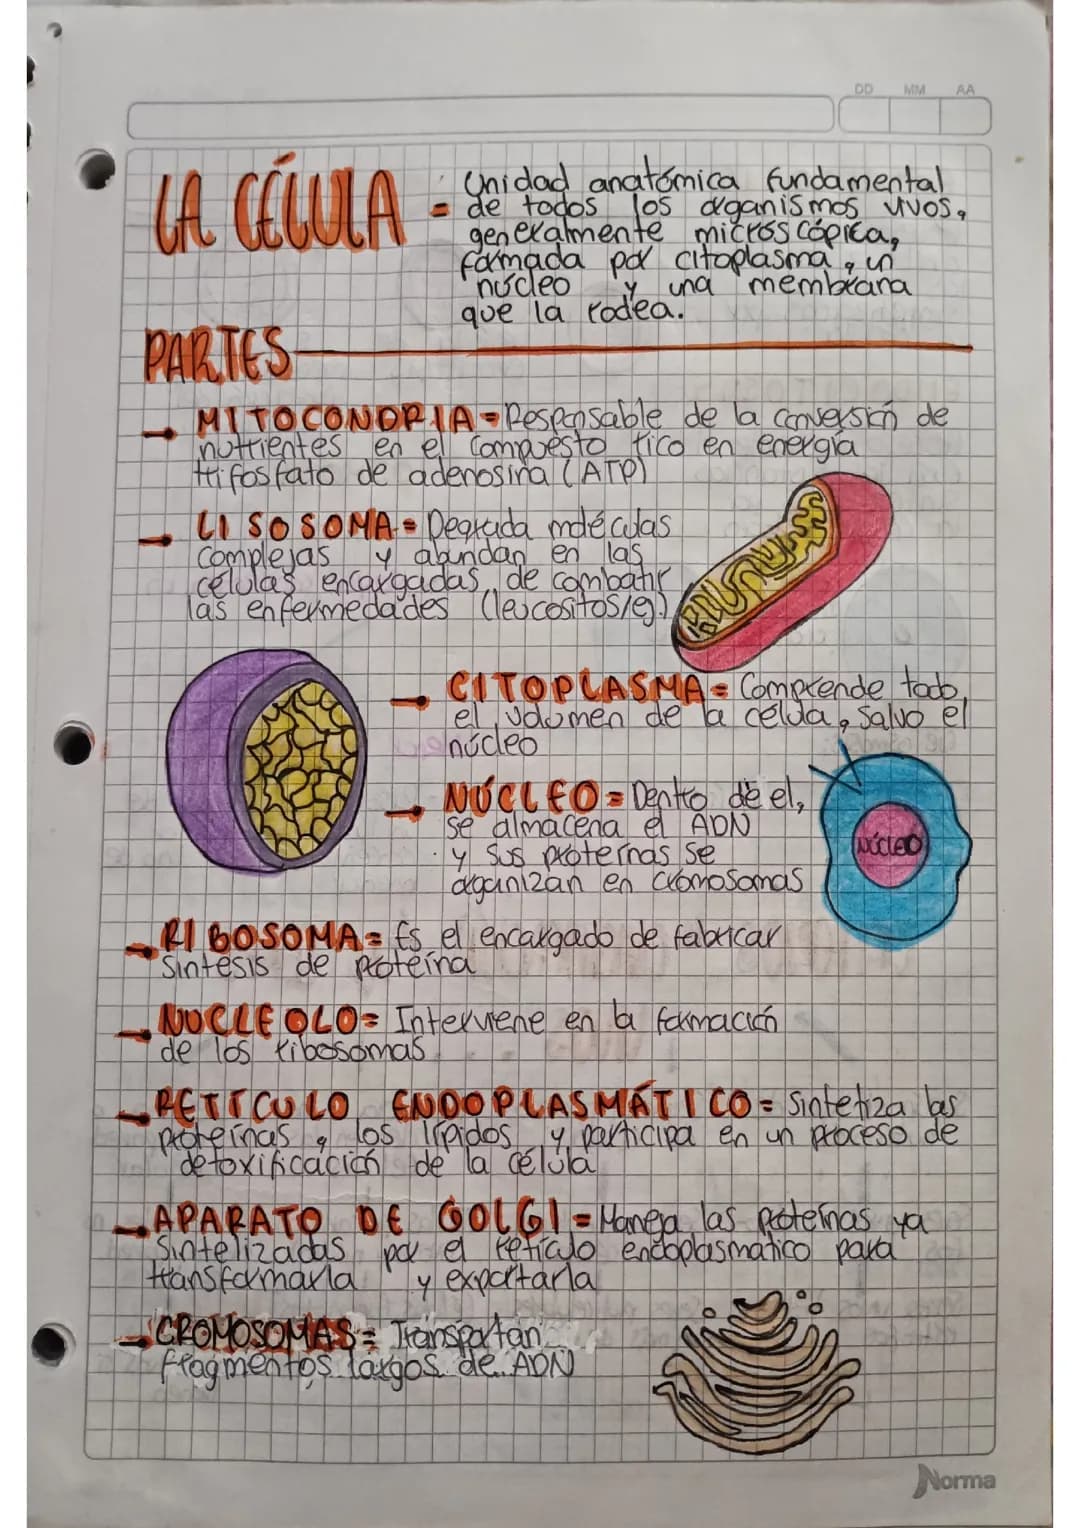 DD MM AA
LA CÉLULA = Unidad anatómica fundamental
de todos los organismos vivos,
generalmente microscópica,
formada por citoplasma, un
núcleo y una membrana
que la rodea.
PARTES
→ MITOCONDRIA = Responsable de la conversión de
nutrientes en el compuesto rico en energía
trifosfato de adenosina (ATP)
→ LISOSOMA = Degrada moléculas
complejas y abundan en las
células encargadas de combatir
las enfermedades (leucositos/eg.)
→ CITOPLASMA = Comprende todo
el volumen de la célula, salvo el
núcleo
→ NÚCLEO = Dentro de el,
se almacena el ADN
y sus proteínas se
organizan en cromosomas
NÚCLEO
→ RIBOSOMA = Es el encargado de fabricar
sintesis de proteína
→ NUCLEOLO = Interviene en la formación
de los ribosomas
→ RETÍCULO ENDOPLASMÁTICO = Sintetiza las
proteínas, los lípidos y participa en un proceso de
detoxificación de la célula
→ APARATO DE GOLGI = Maneja las proteínas ya
sintelizadas por el retículo endoplasmatico para
transformarla y exportarla
→ CROMOSOMAS = Transportan
fragmentos largos de ADN
Norma